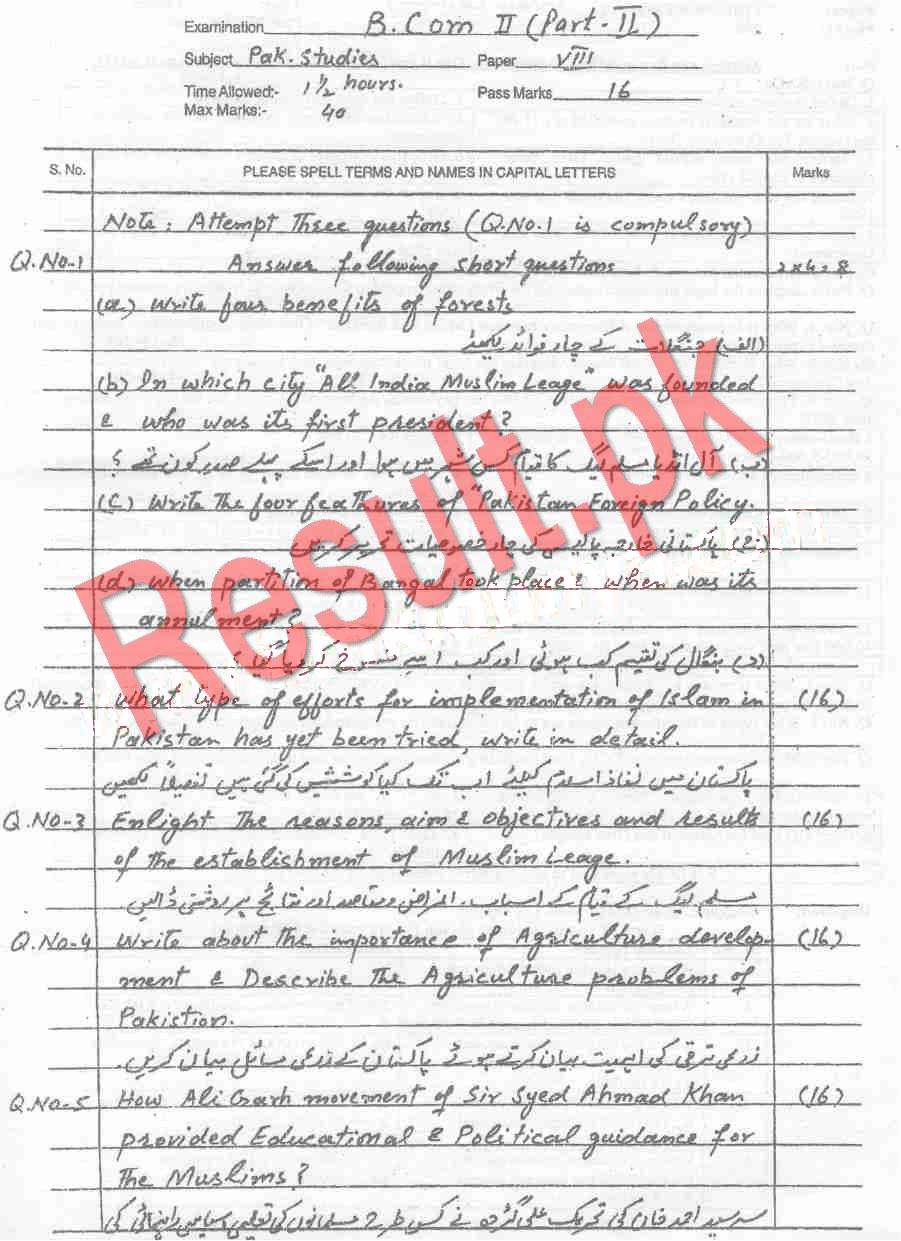 Examination B.Com II (Part-II)
Subject Pak. Studies Paper VIII
Time Allowed:- 1½ hours. Pass Marks 16
Max Marks:- 40
S. No. PLEASE SPELL TERMS AND NAMES IN CAPITAL LETTERS Marks
Note: Attempt Three questions (Q.No.1 is compulsory)
Q.No-1 Answer following short questions 2x4=8
(a) Write four benefits of forests
(الف) جنگلات کے چار فوائد لکھئے
(b) In which city "All India Muslim Leage" was founded
& who was its first president?
(ب) آل انڈیا مسلم لیگ کا قیام کس شہر میں ہوا اور اسکے پہلے صدر کون تھے ؟
(c) Write the four feathures of "Pakistan Foreign Policy.
(ج) پاکستانی خارجہ پالیسی کی چار خصوصیات تحریر کریں
(d) When partition of Bangal took place & when was its
annulment?
(د) بنگال کی تقسیم کب ہوئی اور کب اسے منسوخ کر دیا گیا ؟
Q.No-2 What type of efforts for implementation of Islam in (16)
Pakistan has yet been tried, write in detail.
پاکستان میں نفاذ اسلام کیلئے اب تک کیا کوششیں کی گئی ہیں تفصیلاً لکھیں
Q.No-3 Enlight the reasons, aim & objectives and results (16)
of the establishment of Muslim Leage.
مسلم لیگ کے قیام کے اسباب، اغراض و مقاصد اور نتائج پر روشنی ڈالیں۔
Q.No-4 Write about the importance of Agriculture develop- (16)
ment & Describe the Agriculture problems of
Pakistion.
زرعی ترقی کی اہمیت بیان کرتے ہوئے پاکستان کے زرعی مسائل بیان کریں۔
Q.No-5 How Ali Garh movement of Sir Syed Ahmad Khan (16)
provided Educational & Political guidance for
the Muslims?
سر سید احمد خان کی تحریک علی گڑھ نے کس طرح مسلمانوں کی تعلیمی سیاسی راہنمائی کی
Result.pk